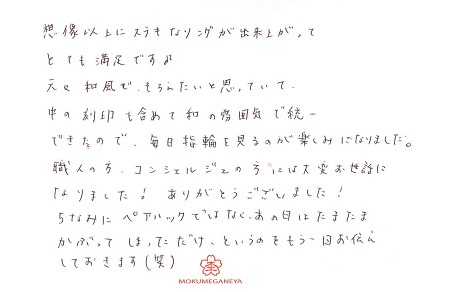 想像以上にステキなリングが出来上がって
とても満足です♪
元々和風で、そろえたいと思っていて、
中の刻印も含めて和の雰囲気で統一
できたので、毎日指輪を見るのが楽しみになりました。
職人の方、コンシェルジュの方には大変お世話に
なりました！ ありがとうございました！
ちなみにペアルックではなく、あの日はたまたま
かぶってしまっただけ、というのをもう一回お伝え
しておきます（笑）
MOKUMEGANEYA